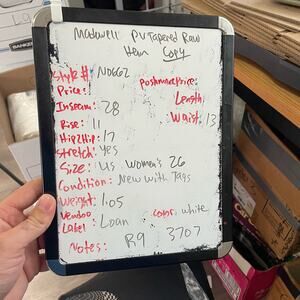 Madewell PV Tapered Raw
Hem Copy
Style #: N0662
Price:
Poshmark Price:
Inseam: 28
Length:
Rise: 11
Waist: 13
Hip2Hip: 17
Stretch: yes
Size: US Women's 26
Condition: New with Tags
Weight: 1.05
Vendoo Label: Loan
Color: white
Notes: R9 3707
BANKER